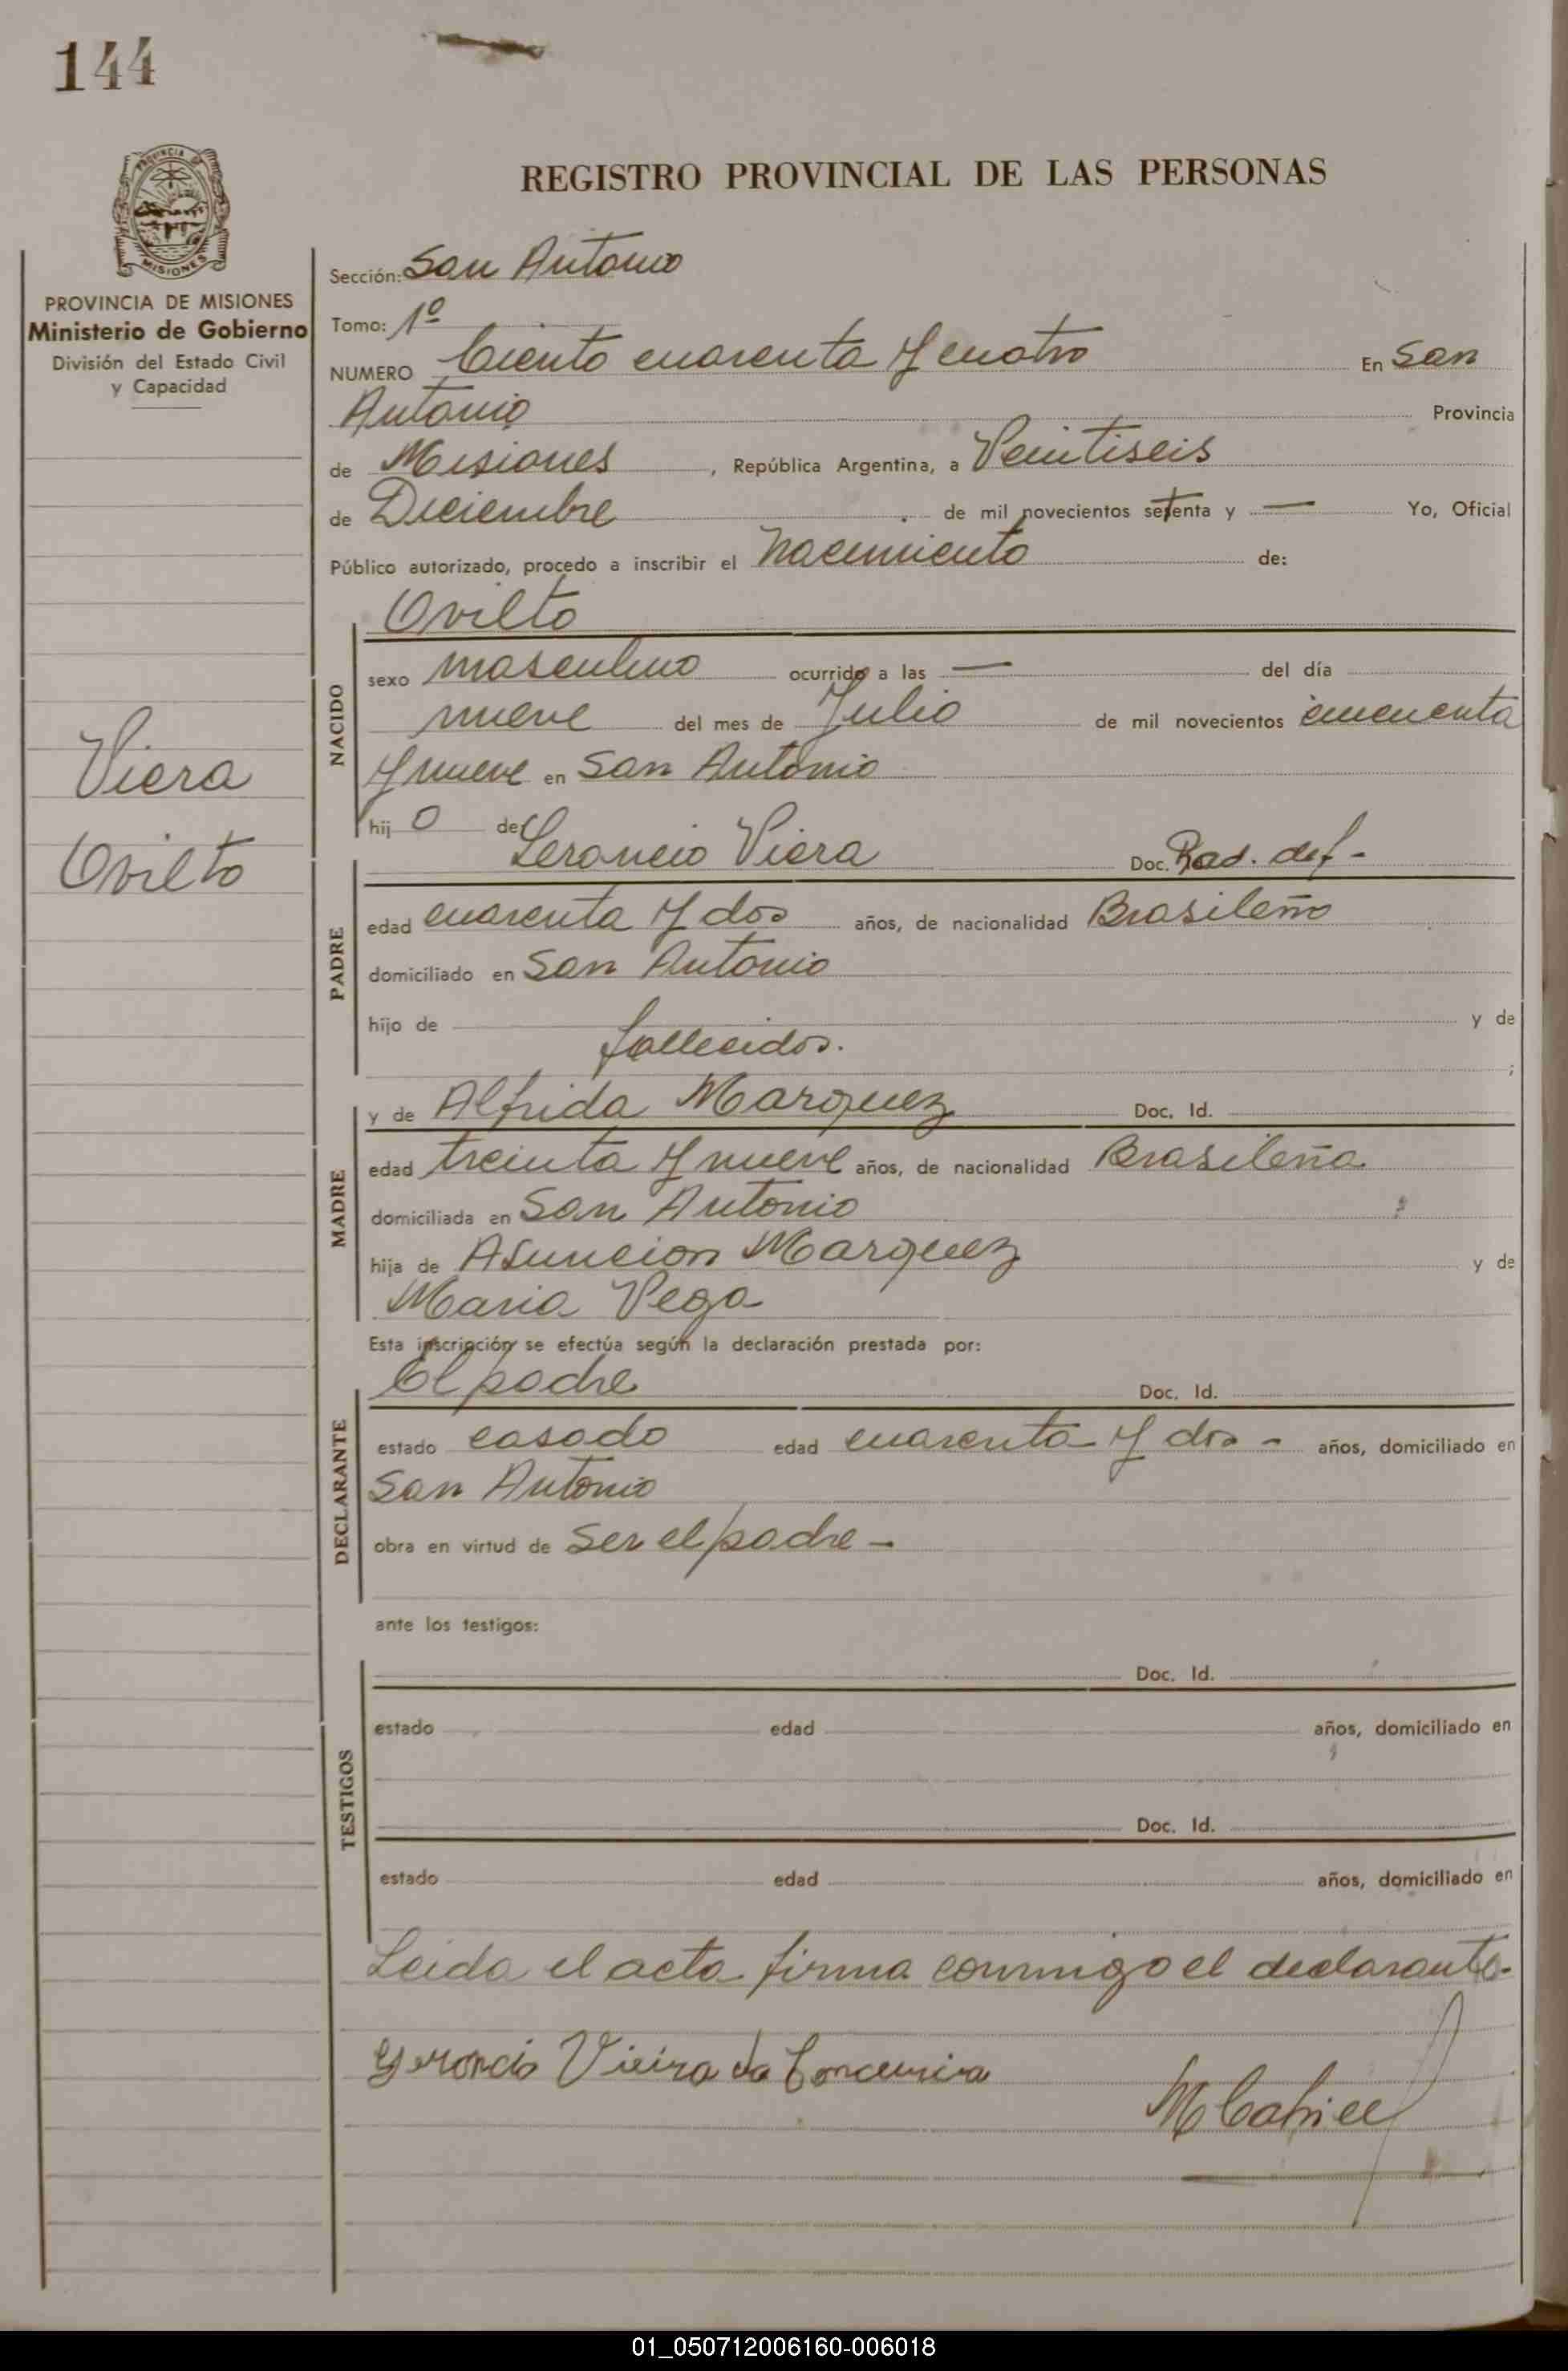 144
PROVINCIA DE
MISIONES
REGISTRO PROVINCIAL DE LAS PERSONAS
PROVINCIA DE MISIONES
Ministerio de Gobierno
División del Estado Civil
y Capacidad
Viera
Ovilto
Sección: San Antonio
Tomo: 1º
NUMERO Ciento cuarenta y cuatro En San
Antonio Provincia
de Misiones, República Argentina, a Veintiseis
de Diciembre de mil novecientos setenta y — Yo, Oficial
Público autorizado, procedo a inscribir el Nacimiento de:
Ovilto
NACIDO
sexo masculino ocurrido a las — del día
nueve del mes de Julio de mil novecientos cincuenta
y nueve en San Antonio
hij o de Leroncio Viera Doc. Rad. def -
PADRE
edad cuarenta y dos años, de nacionalidad Brasileño
domiciliado en San Antonio
hijo de y de
fallecidos.
;
y de Alfrida Marquez Doc. Id.
MADRE
edad treinta y nueve años, de nacionalidad Brasileña
domiciliada en San Antonio
hija de Asuncion Marquez y de
Maria Vega
Esta inscripción se efectúa según la declaración prestada por:
El padre Doc. Id.
DECLARANTE
estado casado edad cuarenta y dos - años, domiciliado en
San Antonio
obra en virtud de Ser el padre -
ante los testigos:
TESTIGOS
Doc. Id.
estado edad años, domiciliado en
Doc. Id.
estado edad años, domiciliado en
Leida el acta firma conmigo el declarante-
Geroncio Vieira da
01_050712006160-006018